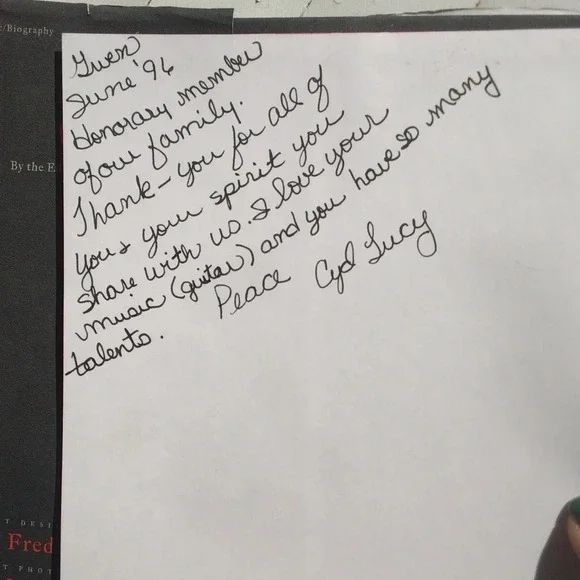 e/Biography
By the E
T DESI
Fred
T PHOT
Gwen
June '96
Honorary member
of our family.
Thank-you for all of
you & your spirit you
share with us. I love your
music (guitar) and you have so many
talents.
Peace Cyd Lucy